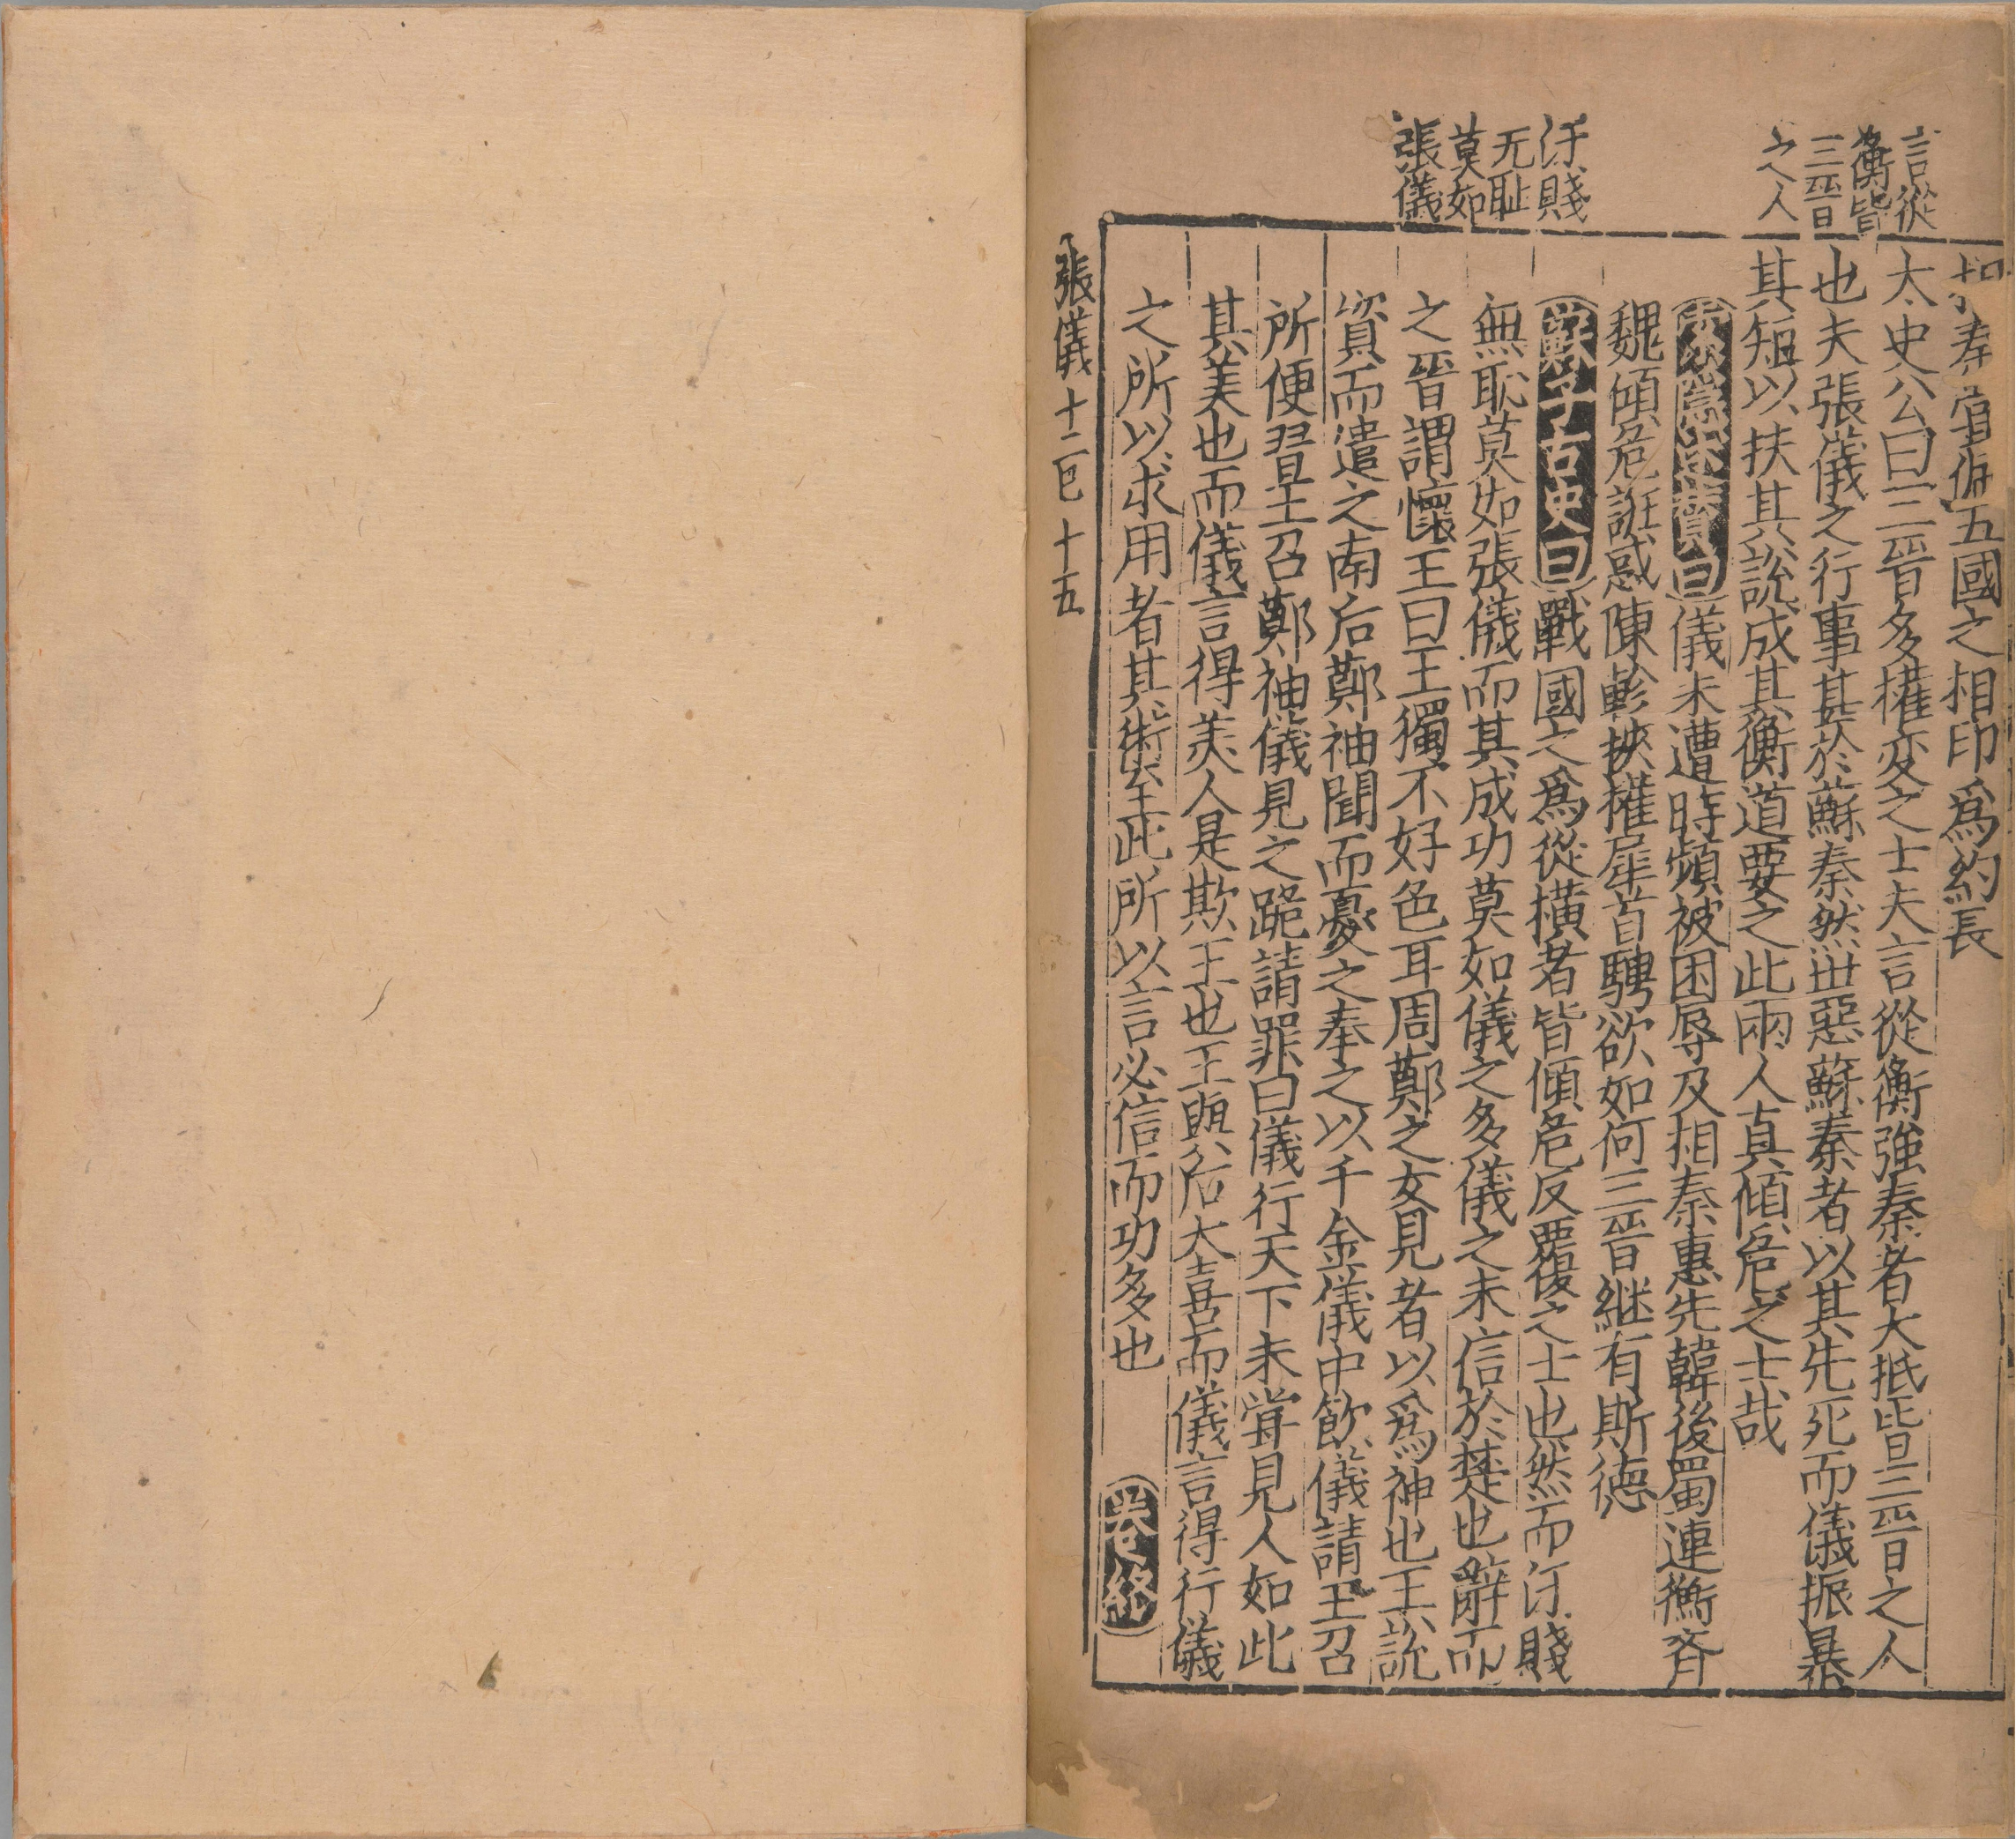 言從
衡皆
三晋
之人
汙賤
无耻
莫如
張儀
相秦嘗佩五國之相印爲約長
太史公曰三晋多權変之士夫言從衡強秦者大抵皆三晋之人
也夫張儀之行事甚於蘇秦然丗惡蘇秦者以其先死而儀振暴
其短以扶其說成其衡道要之此兩人真傾危之士哉
索隱述贊曰儀未遭時頻被困辱及相秦惠先韓後蜀連衡斉
魏傾危誑惑陳軫挾權犀首騁欲如何三晋継有斯德
蘇子古史曰戰國之爲從橫者皆傾危反覆之士也然而汙賤
無恥莫如張儀而其成功莫如儀之多儀之未信於楚也辭而
之晋謂懷王曰王獨不好色耳周鄭之女見者以爲神也王說
資而遣之南后鄭袖聞而憂之奉之以千金儀中飲儀請王召
所便習王召鄭袖儀見之跪請罪曰儀行天下未甞見人如此
其美也而儀言得美人是欺王也王與后大喜而儀言得行儀
之所以求用者其術至此所以言必信而功多也
卷終
張儀十二巳 十五